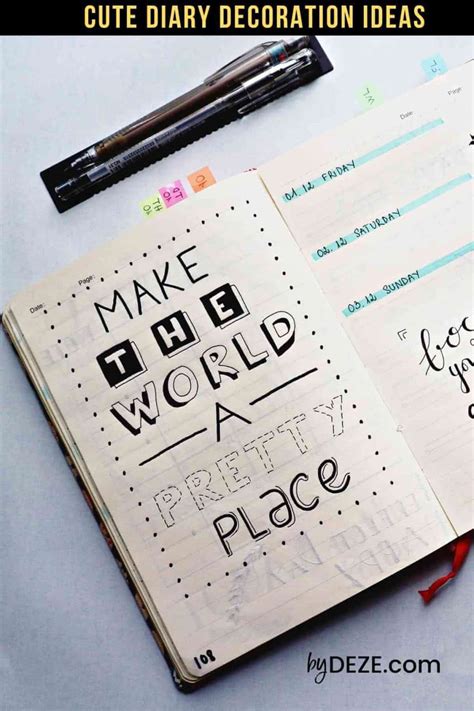 CUTE DIARY DECORATION IDEAS
Date:
Page:
MAKE
THE
WORLD
A
PRETTY
PLACE
108
Date
01.12 FRIDAY
02.12 SATURDAY
03.12 SUNDAY
TH
byDEZE.com